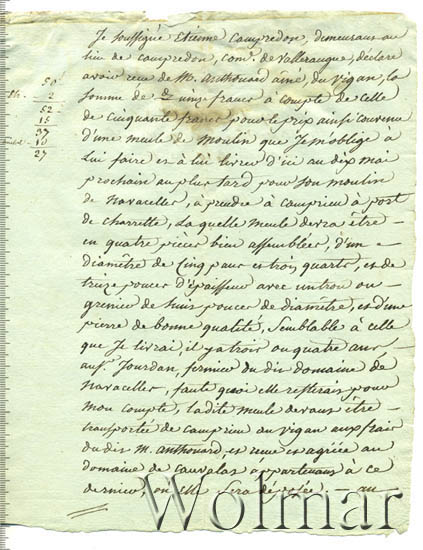 Je soussigné Etienne Campredon, demeurant au
lieu de campredon, com.e de Valleraugue, déclare
avoir reçu de M. Anthouard ainé, du vigan, la
somme de francs à compte de celle
de cinquante francs pour le prix ainsi convenu
d'une meule de moulin que Je m'oblige à
Lui faire et à lui livrer d'ici au dix mai
prochain au plus tard pour son moulin
de navacelles, à prendre à camprieu à port
de charrette, La quelle meule devra être —
en quatre pièces bien assemblées, d'un
diamètre de Cinq pans et trois quarts, et de
treize pouces d'épaisseur avec un trou ou
de huit pouces de diamètre, et d'une
pierre de bonne qualité, Semblable à celle
que Je livrai, il y a trois ou quatre ans,
au S.r Jourdan, fermier du dit domaine de
Navacelles, faute quoi elle resterait pour
mon compte, ladite meule devant être —
transportée de Camprieu au vigan aux frais
du dit M. Anthouard, et reçue et agréée au
domaine de cauvalat appartenant à ce
dernier, où elle Sera déposée, — au
50
2
52
15
37
10
27
Wolmar